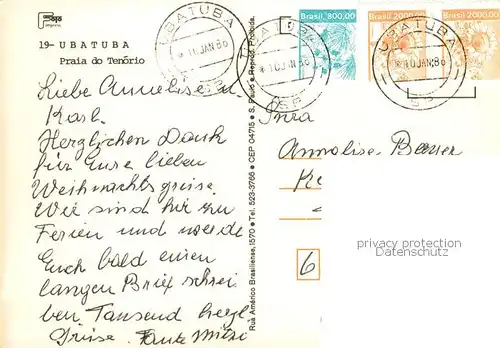 19 - UBATUBA
Praia do Tenório
Liebe Annelise u.
Karl.
Herzlichen Dank
für Eure lieben
Weihnachtsgrüsse.
Wir sind hier zu
Ferien und werde
Euch bald einen
langen Brief schrei
ben Tausend herzl
Grüsse. Tante Mitzi
Rua Américo Brasiliense, 1570 • Tel. 523-3766 • CEP 04715 • S. Paulo • Reprod. Proibida.
UBATUBA
10 JAN 86
SP
UBATUBA
10 JAN 86
SP
UBATUBA
10 JAN 86
SP
Brasil 800,00
Brasil 2000,00
Brasil 2000,00
Annalise
Ke
6
privacy protection
watermark